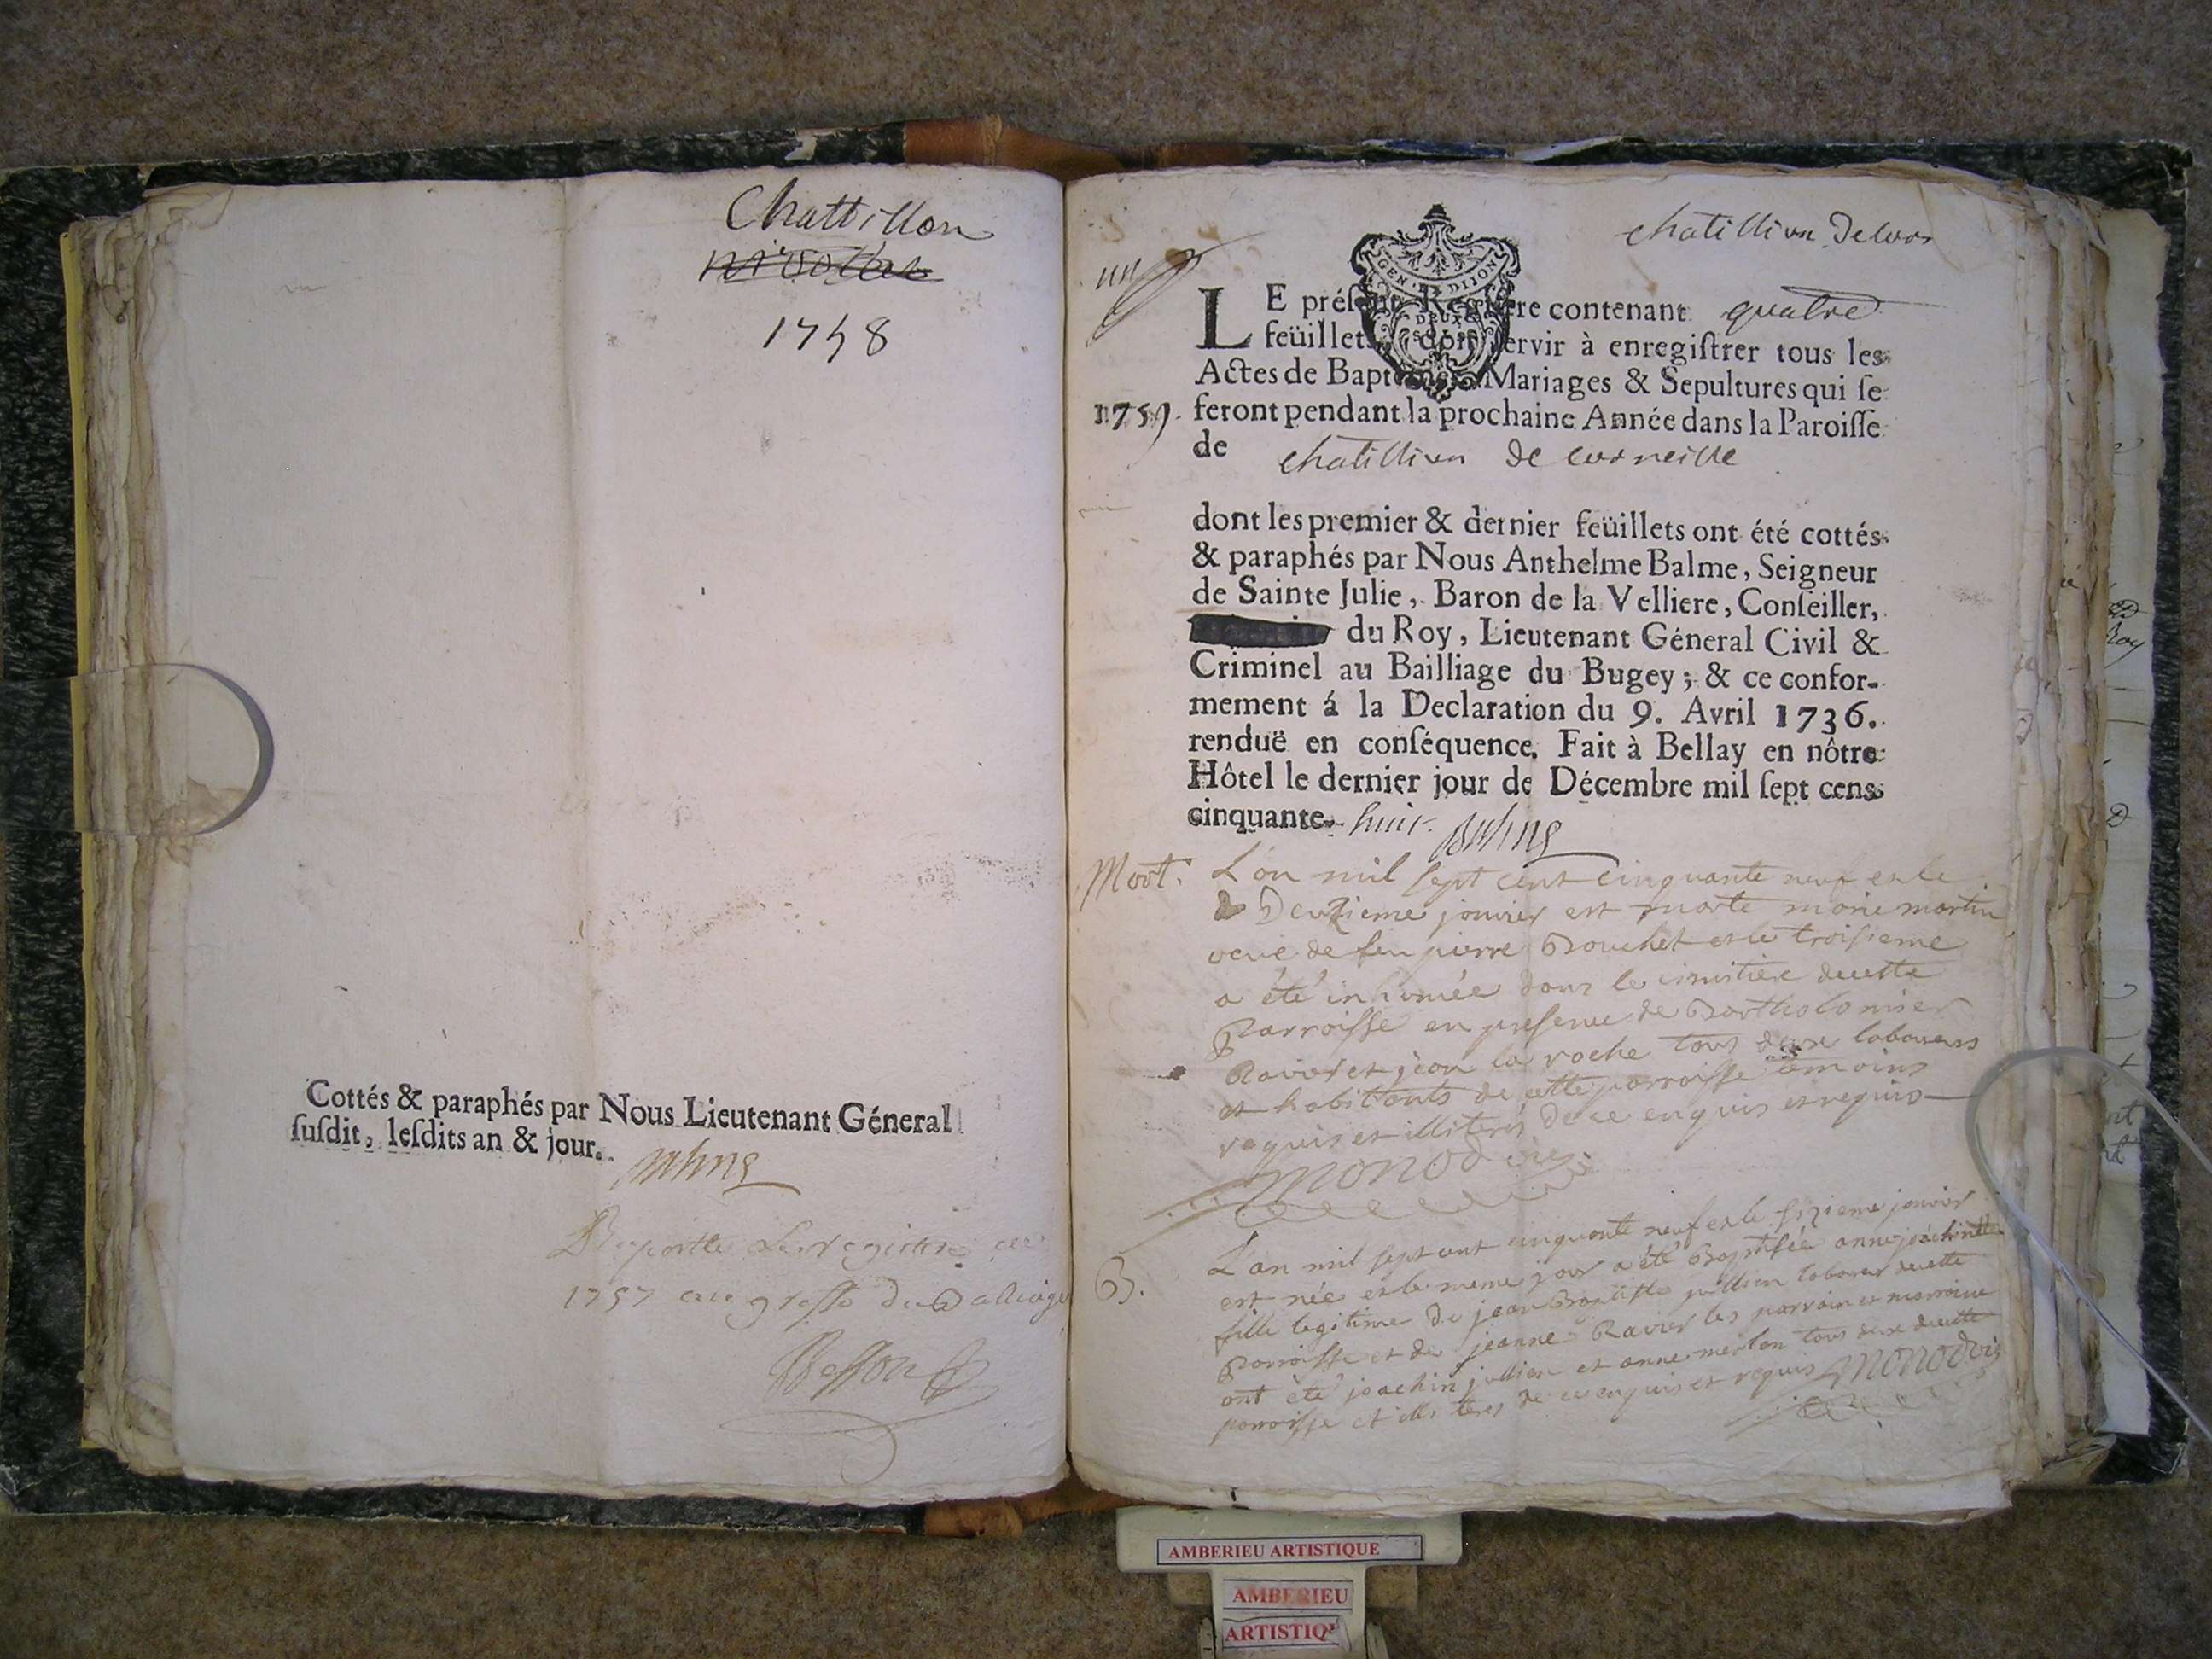 Chattillon
1758
Cottés & paraphés par Nous Lieutenant Géneral
ſuſdit, leſdits an & jour.
1757 au greffe du Balliage
un
chatillion de cor
GEN. DE DIJON
DEUX
SOLS
LE préſent Regiſtre contenant quatre
feüillets, doit ſervir à enregiſtrer tous les
Actes de Baptêmes, Mariages & Sepultures qui ſe
1759. feront pendant la prochaine Année dans la Paroiſſe
de chatillion de corneille
dont les premier & dernier feüillets ont été cottés
& paraphés par Nous Anthelme Balme, Seigneur
de Sainte Julie, Baron de la Velliere, Conſeiller,
du Roy, Lieutenant Géneral Civil &
Criminel au Bailliage du Bugey; & ce confor-
mement á la Declaration du 9. Avril 1736.
renduë en conſéquence. Fait à Bellay en nôtre
Hôtel le dernier jour de Décembre mil ſept cens
cinquante- huit. Balme
Mort. L'on mil sept cent cinquante neuf et le
Deuzieme janvier est morte marie martin
veuve de feu pierre Bouchet et le troisieme
a été inhumée dans le cimitiere de cette
Parroisse en presence de Bartholomier
Ravier et jean la roche tous deux laboureurs
et habitants de cette parroisse temoins
requis et illiterés de ce enquis et requis
monodvis
B. L'an mil sept cent cinquante neuf et le sizieme janvier
est née et le meme jour a été Baptisée anne joachinette
fille legitime de jean Baptiste jullian laboureur de cette
Parroisse et de jeanne Ravier les parrain et marraine
ont été joachin jullian et anne merlan tous deux de cette
parroisse et illiterés de ce enquis et requis monodvis
AMBERIEU ARTISTIQUE
AMBERIEU
ARTISTIQ